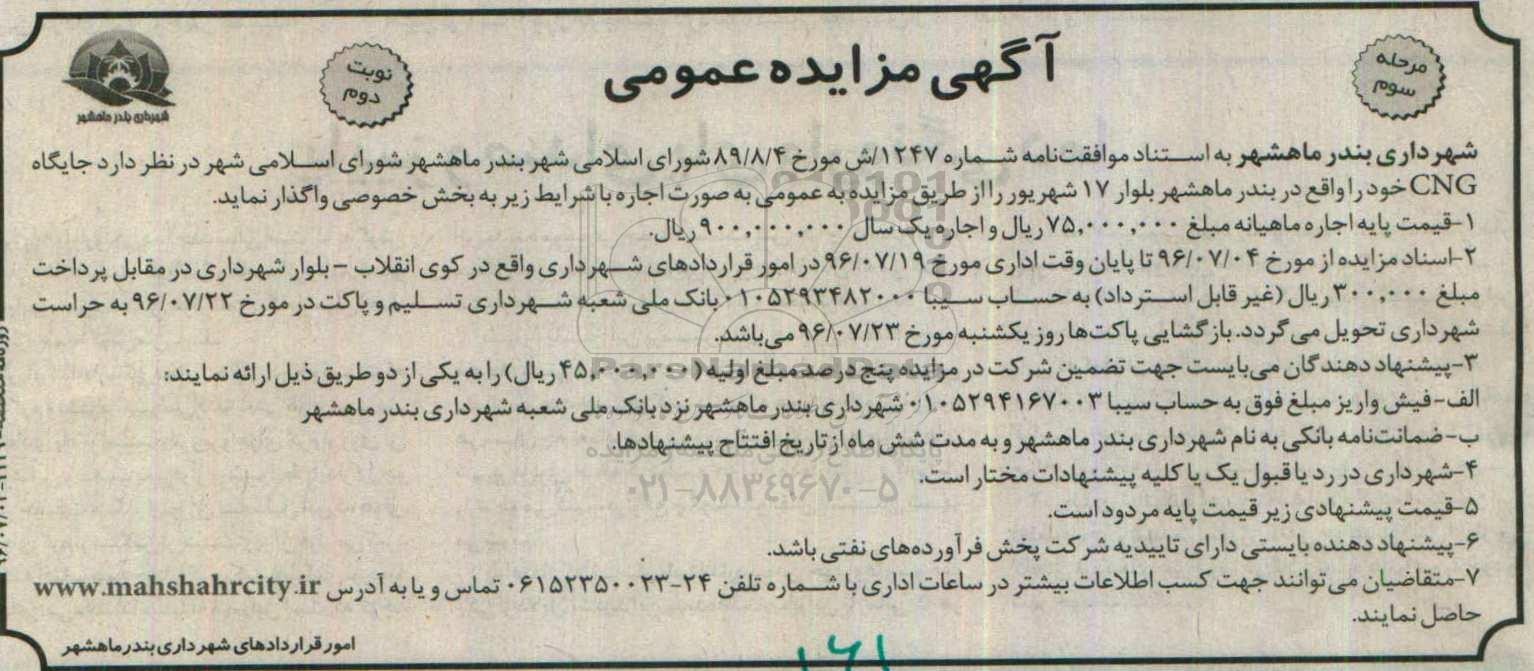 مرحله سوم
آگهی مزایده عمومی
نوبت دوم
شهرداری بندر ماهشهر
شهرداری بندر ماهشهر به استناد موافقت‌نامه شماره ۱۲۴۷/ش مورخ ۸۹/۸/۴ شورای اسلامی شهر بندر ماهشهر شورای اسلامی شهر در نظر دارد جایگاه
CNG خود را واقع در بندر ماهشهر بلوار ۱۷ شهریور را از طریق مزایده به عمومی به صورت اجاره با شرایط زیر به بخش خصوصی واگذار نماید.
۱-قیمت پایه اجاره ماهیانه مبلغ ۷۵,۰۰۰,۰۰۰ ریال و اجاره یک سال ۹۰۰,۰۰۰,۰۰۰ ریال.
۲-اسناد مزایده از مورخ ۹۶/۰۷/۰۴ تا پایان وقت اداری مورخ ۹۶/۰۷/۱۹ در امور قراردادهای شهرداری واقع در کوی انقلاب - بلوار شهرداری در مقابل پرداخت
مبلغ ۳۰۰,۰۰۰ ریال (غیر قابل استرداد) به حساب سیبا ۰۱۰۵۲۹۳۴۸۲۰۰۰ بانک ملی شعبه شهرداری تسلیم و پاکت در مورخ ۹۶/۰۷/۲۲ به حراست
شهرداری تحویل می گردد. بازگشایی پاکت‌ها روز یکشنبه مورخ ۹۶/۰۷/۲۳ می‌باشد.
۳-پیشنهاد دهندگان می‌بایست جهت تضمین شرکت در مزایده پنج درصد مبلغ اولیه (۴۵,۰۰۰,۰۰۰ ریال) را به یکی از دو طریق ذیل ارائه نمایند:
الف- فیش واریز مبلغ فوق به حساب سیبا ۰۱۰۵۲۹۴۱۶۷۰۰۳ شهرداری بندر ماهشهر نزد بانک ملی شعبه شهرداری بندر ماهشهر
ب- ضمانت‌نامه بانکی به نام شهرداری بندر ماهشهر و به مدت شش ماه از تاریخ افتتاح پیشنهادها.
۴-شهرداری در رد یا قبول یک یا کلیه پیشنهادات مختار است.
۵-قیمت پیشنهادی زیر قیمت پایه مردود است.
۶-پیشنهاد دهنده بایستی دارای تاییدیه شرکت پخش فرآورده‌های نفتی باشد.
۷-متقاضیان می‌توانند جهت کسب اطلاعات بیشتر در ساعات اداری با شماره تلفن ۲۴-۰۶۱۵۲۳۵۰۰۲۳ تماس و یا به آدرس www.mahshahrcity.ir
حاصل نمایند.
امور قراردادهای شهرداری بندر ماهشهر
۰۲۱-۸۸۳۴۹۶۷۰-۵